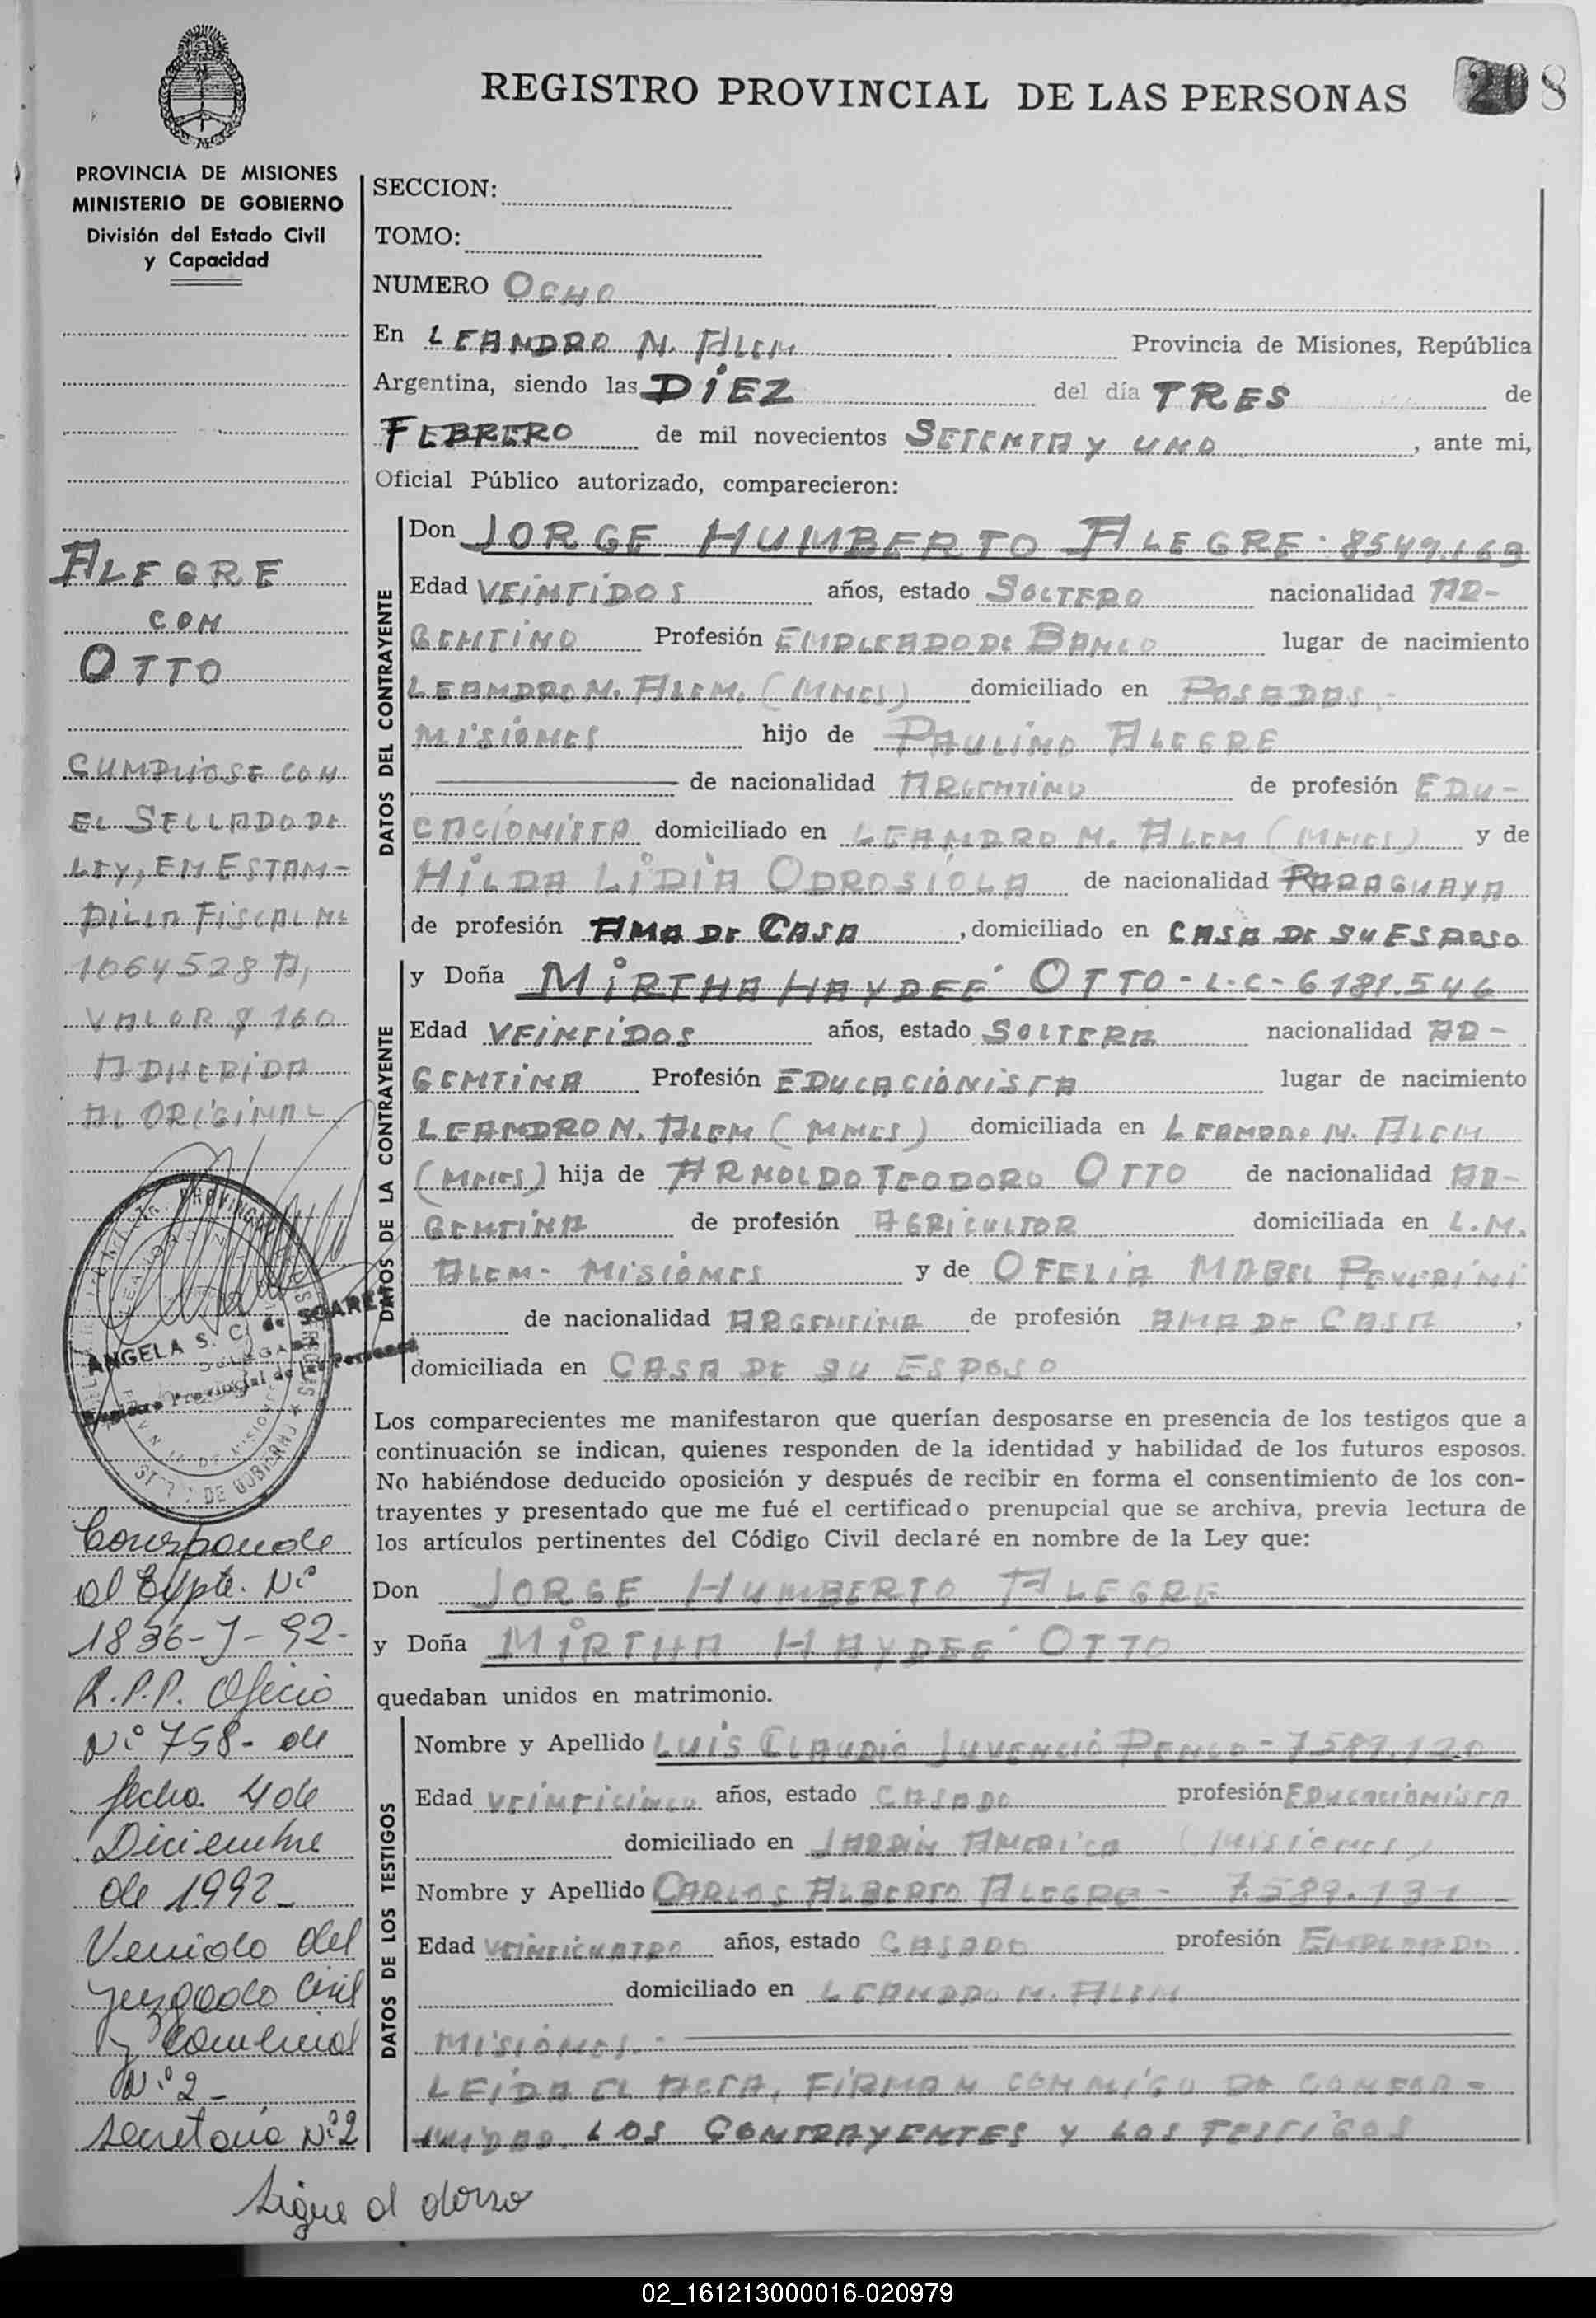 REGISTRO PROVINCIAL DE LAS PERSONAS 208
PROVINCIA DE MISIONES
MINISTERIO DE GOBIERNO
División del Estado Civil
y Capacidad
ALEGRE
CON
OTTO
CUMPLIOSE CON
EL SELLADO DE
LEY, EN ESTAM-
PILLA FISCAL Nº
1064528 A,
VALOR $ 160
ADHERIDA
AL ORIGINAL
ANGELA S. C. de SOAREZ
DELEGADA
Registro Provincial de las Personas
Corresponde
al Expte. Nº
1836-J-92-
R.P.P. Oficio
Nº 758- de
fecha 4 de
Diciembre
de 1992-
Venido del
Juzgado Civil
y Comercial
Nº 2-
Secretaría Nº 2
SECCION:
TOMO:
NUMERO OCHO
En LEANDRO N. ALEM Provincia de Misiones, República
Argentina, siendo las DIEZ del día TRES de
FEBRERO de mil novecientos SETENTA Y UNO , ante mi,
Oficial Público autorizado, comparecieron:
DATOS DEL CONTRAYENTE
Don JORGE HUMBERTO ALEGRE: 8549.169
Edad VEINTIDOS años, estado SOLTERO nacionalidad AR-
GENTINO Profesión EMPLEADO DE BANCO lugar de nacimiento
LEANDRO N. ALEM. (MNES) domiciliado en POSADAS,-
MISIONES hijo de PAULINO ALEGRE
de nacionalidad ARGENTINO de profesión EDU-
CACIONISTA domiciliado en LEANDRO N. ALEM (MNES) y de
HILDA LIDIA ODROSIOLA de nacionalidad PARAGUAYA
de profesión AMA DE CASA , domiciliado en CASA DE SU ESPOSO
DATOS DE LA CONTRAYENTE
y Doña MIRTHA HAYDEE OTTO - L-C- 6181.546
Edad VEINTIDOS años, estado SOLTERA nacionalidad AR-
GENTINA Profesión EDUCACIONISTA lugar de nacimiento
LEANDRO N. ALEM (MNES) domiciliada en LEANDRO N. ALEM
(MNES) hija de ARNOLDO TEODORO OTTO de nacionalidad AR-
GENTINA de profesión AGRICULTOR domiciliada en L.N.
ALEM- MISIONES y de OFELIA MABEL PEVERINI
de nacionalidad ARGENTINA de profesión AMA DE CASA ,
domiciliada en CASA DE SU ESPOSO
Los comparecientes me manifestaron que querían desposarse en presencia de los testigos que a
continuación se indican, quienes responden de la identidad y habilidad de los futuros esposos.
No habiéndose deducido oposición y después de recibir en forma el consentimiento de los con-
trayentes y presentado que me fué el certificado prenupcial que se archiva, previa lectura de
los artículos pertinentes del Código Civil declaré en nombre de la Ley que:
Don JORGE HUMBERTO ALEGRE
y Doña MIRTHA HAYDEE OTTO
quedaban unidos en matrimonio.
DATOS DE LOS TESTIGOS
Nombre y Apellido LUIS CLAUDIO JUVENCIO PENCO - 7589.120
Edad VEINTICINCO años, estado CASADO profesión EDUCACIONISTA
domiciliado en JARDIN AMERICA (MISIONES)
Nombre y Apellido CARLOS ALBERTO ALEGRE - 7.589.131
Edad VEINTICUATRO años, estado CASADO profesión EMPLEADO
domiciliado en LEANDRO N. ALEM
MISIONES.-
LEIDA EL ACTA, FIRMAN CONMIGO DE CONFOR-
MIDAD. LOS CONTRAYENTES Y LOS TESTIGOS
Sigue al dorso
02_161213000016-020979